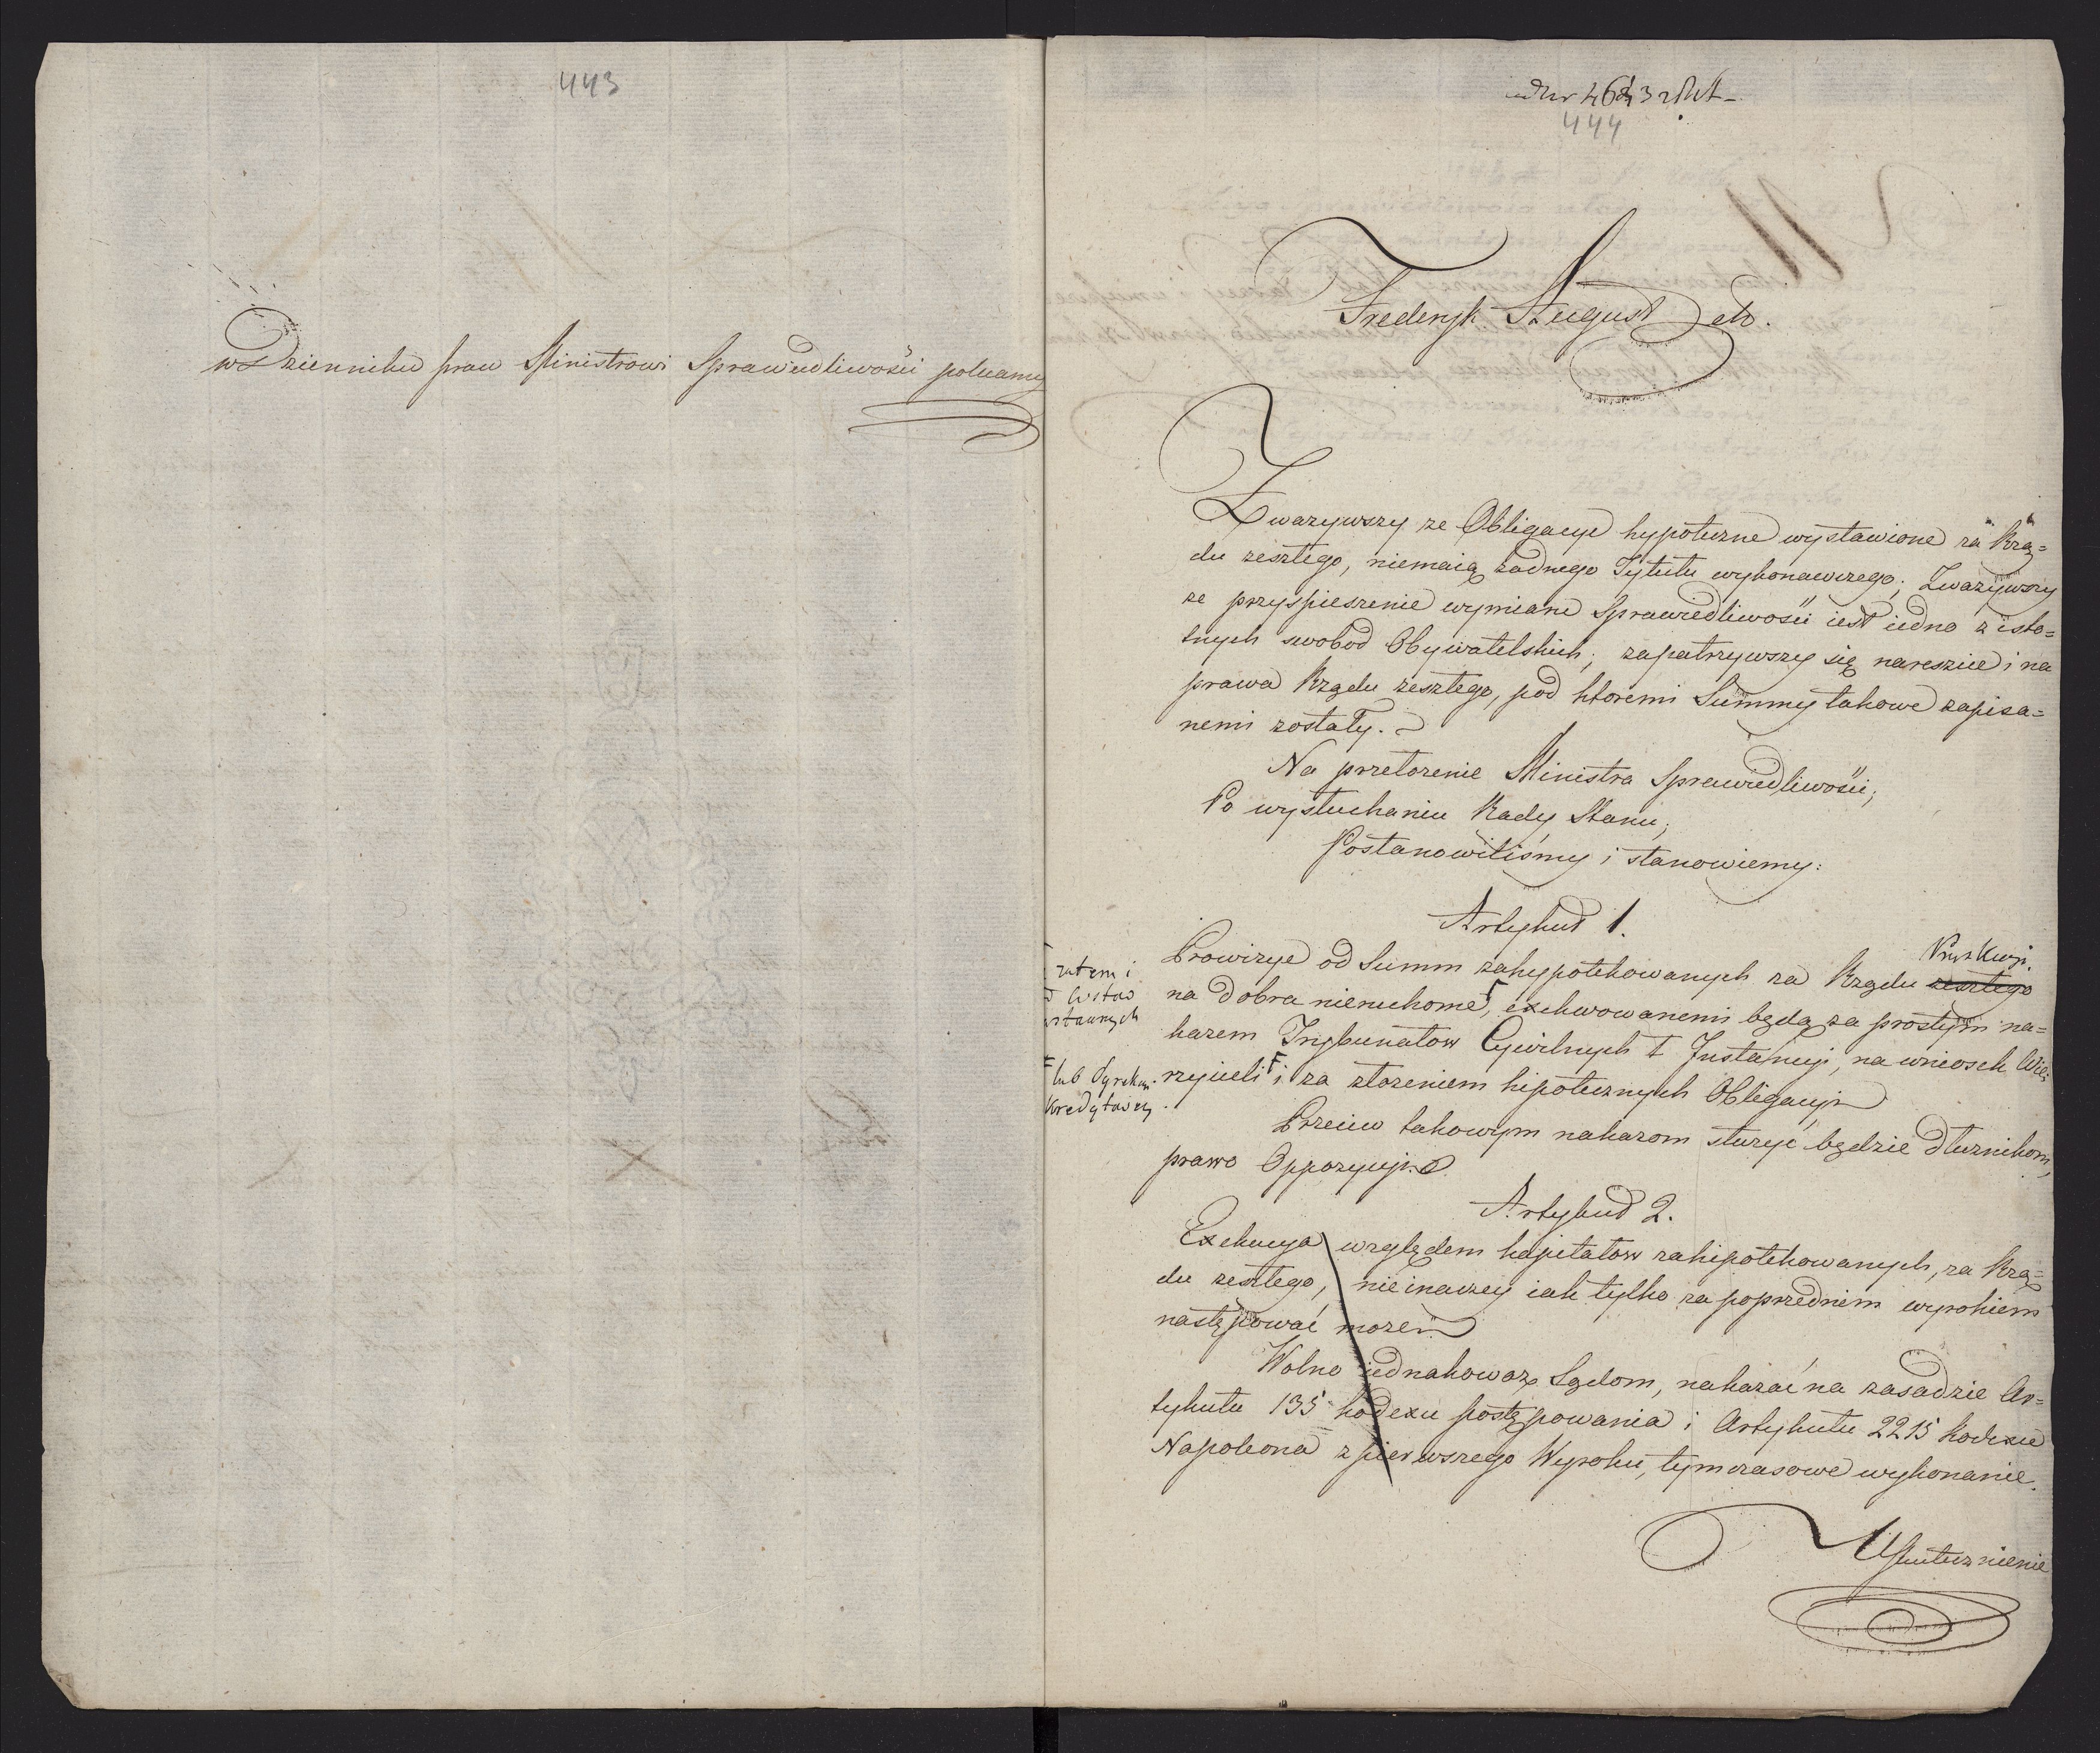 443
w Dzienniku praw Ministrowi Sprawiedliwości polecamy
444
Fryderyk August etc.
Zwazywszy ze Obligacye hypoteczne wystawione za Rzą=
du zeszłego, niemaią żadnego Tytułu wykonawczego; Zwazywszy
ze przyspieszenie wymiaru Sprawiedliwości iest iedno z isto=
tnych swobod Obywatelskich; zapatrzywszy się nareszcie i na
prawa Rządu zeszłego, pod ktoremi Summy takowe zapisa=
nemi zostały.
Na przełozenie Ministra Sprawiedliwości;
Po wysłuchaniu Rady Stanu;
Postanowiliśmy i stanowiemy:
Artykuł 1.
Prowizye od Summ zahypotekowanych za Rządu zeszłego Prus Kiego
na dobra nieruchome, exekwowanemi będą za prostym na=
kazem Trybunałow Cywilnych 1 Instancyi, na wniosek Wie=
rzycieli i za złozeniem hipotecznych Obligacyi
zatem i
listow
zastawnych
lub Dyrekcyi
Kredytowey
Przeciw takowym nakazom słuzyć będzie Dłuznikom,
prawo Oppozycyi.
Artykuł 2.
Exekucya względem kapitałow zahipotekowanych, za Rzą=
du zeszłego, nieinaczey iak tylko za poprzedniem wyrokiem
następować może
Wolno iednakowoz Sądom, nakazać na zasadzie Ar=
tykułu 135 kodexu postępowania i Artykułu 2215 Kodexu
Napoleona z pierwszego Wyroku, tymczasowe wykonanie.
Uskutecznienie